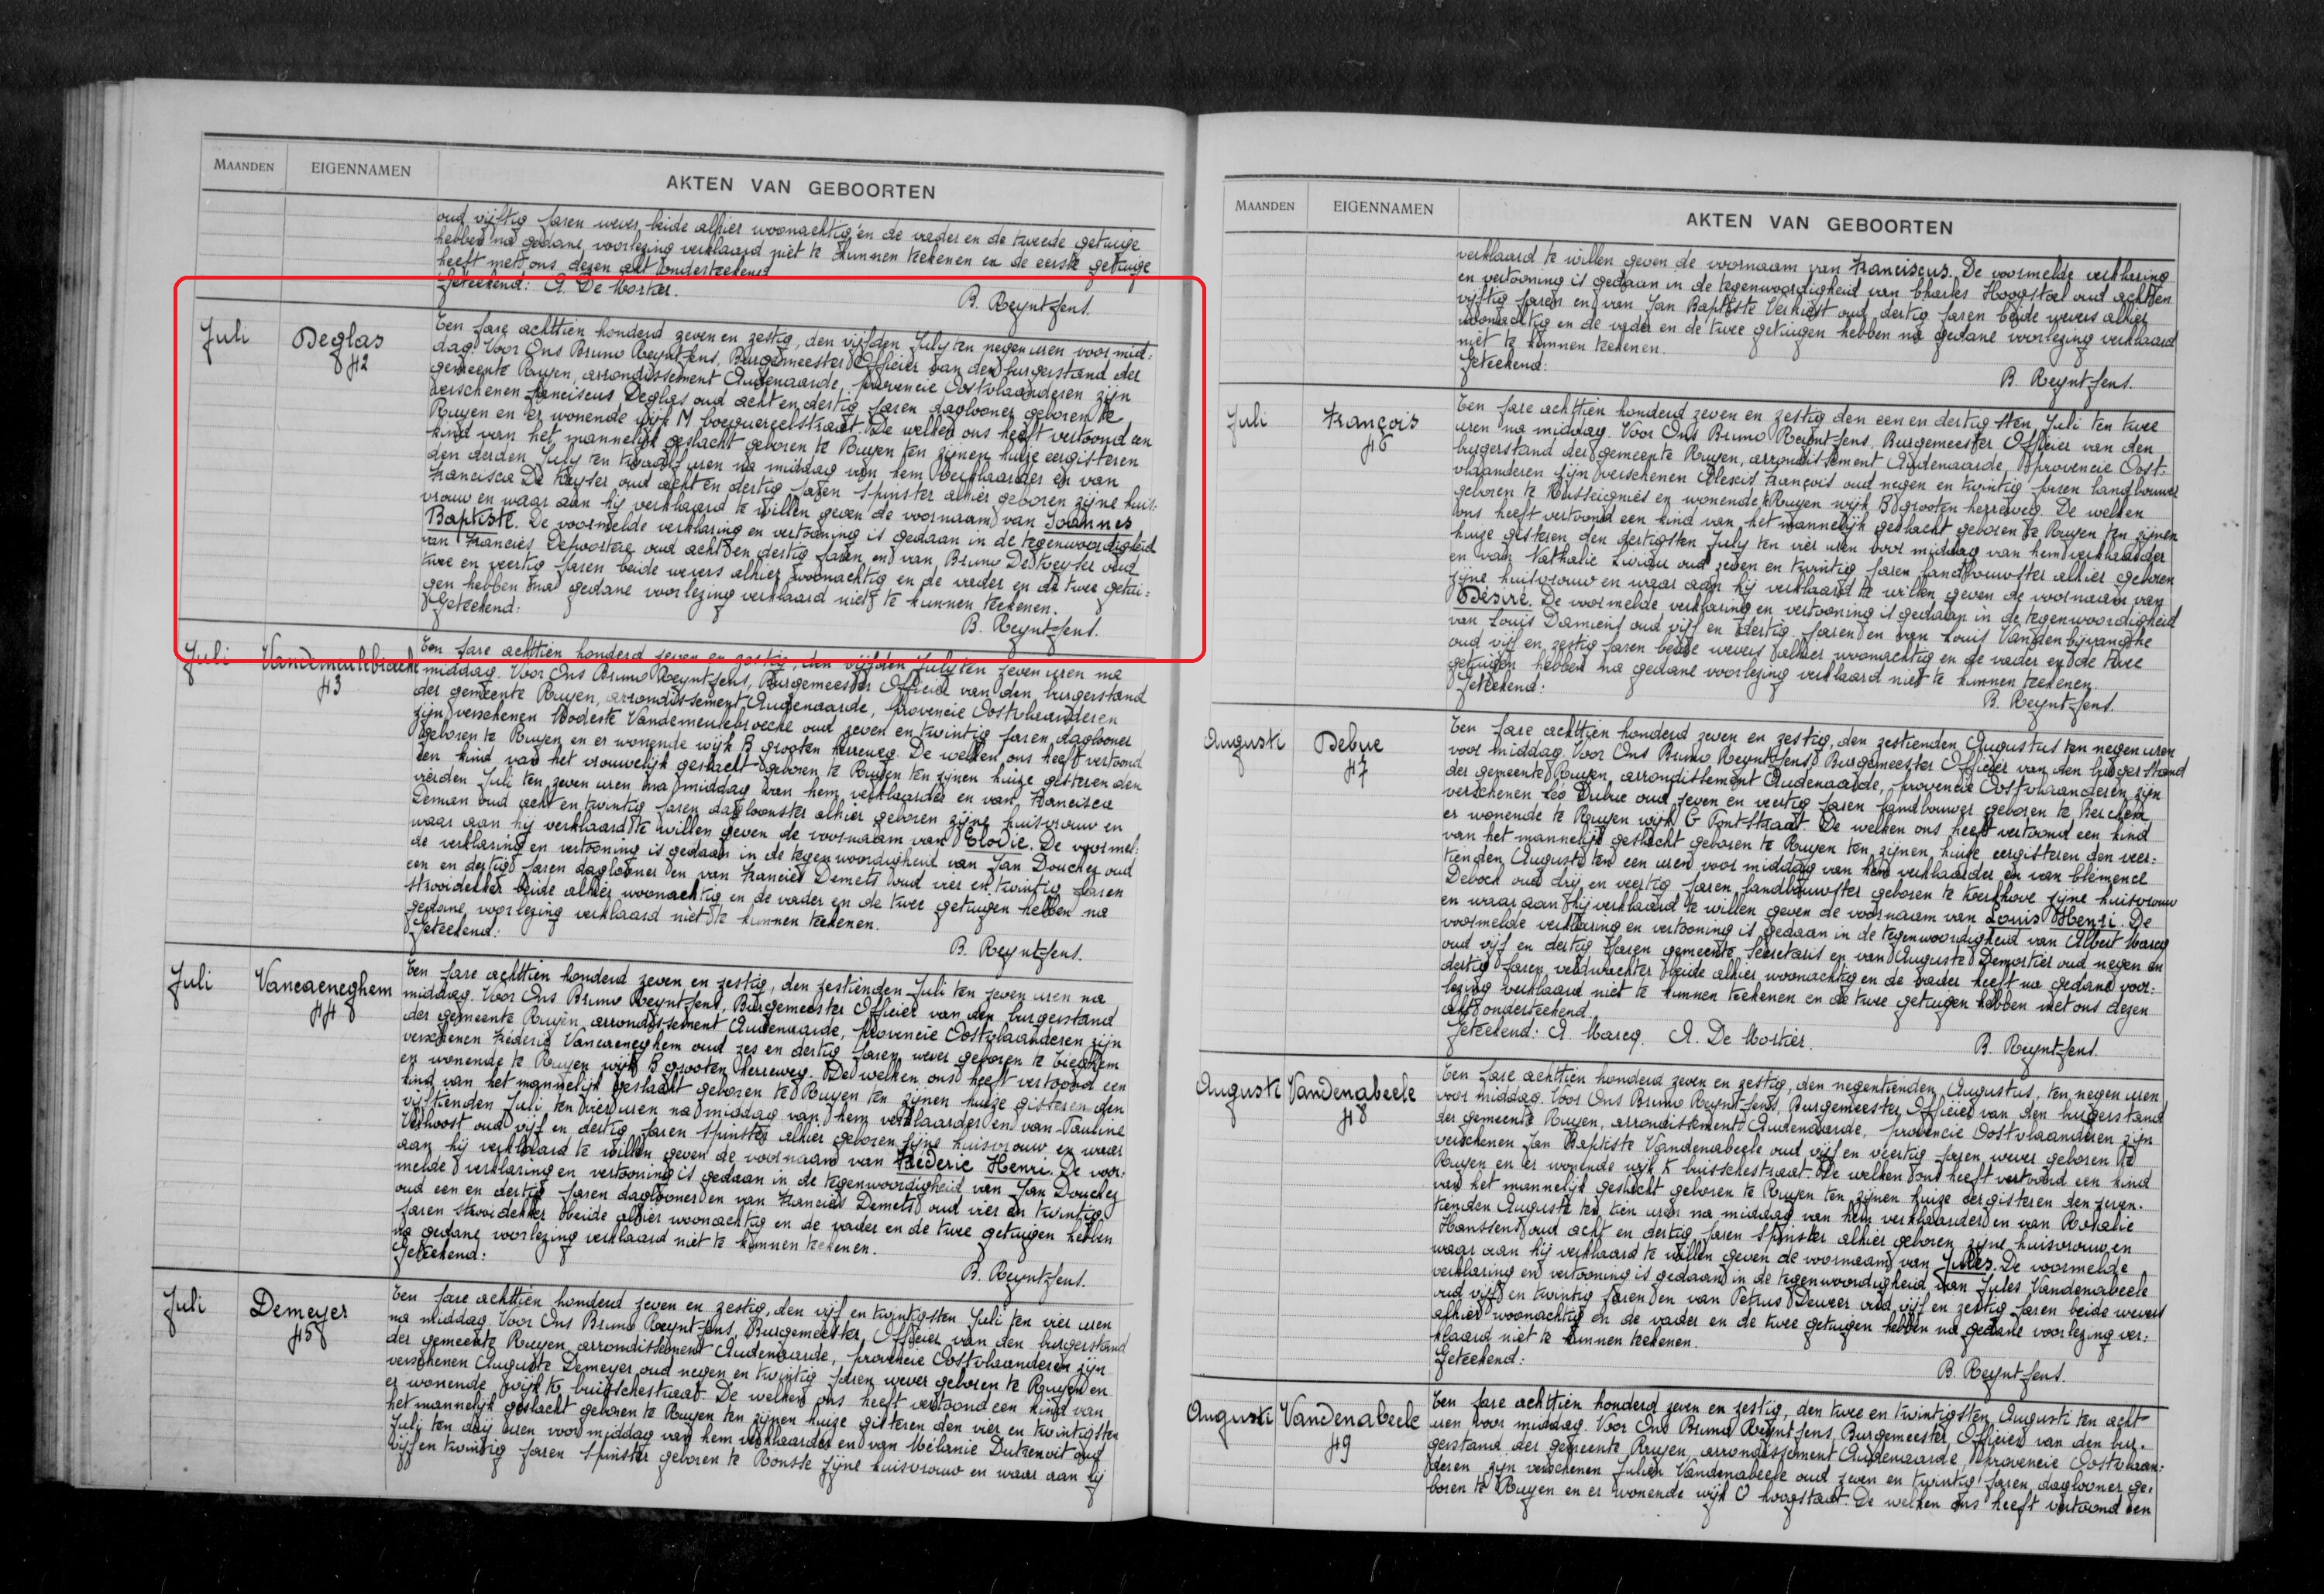 MAANDEN EIGENNAMEN AKTEN VAN GEBOORTEN
oud vijftig jaren wever, beide alhier woonachtig en de vader en de tweede getuige
hebben na gedane voorlezing verklaard niet te kunnen teekenen en de eerste getuige
heeft met ons dezen akt onderteekend
Geteekend: A. De Mortier.
B. Reyntjens.
Juli Deglas 42
Ten jare achttien honderd zeven en zestig, den vijfden July ten negen uren voormid:
dag. Voor Ons Bruno Reyntjens, Burgemeester Officier van den burgerstand der
gemeente Ruyen, arrondissement Audenaarde, provencie Oostvlaanderen zijn
verschenen Franciscus Deglas oud acht en dertig jaren daglooner geboren te
Ruyen en er wonende wijk M bocquereelstraat. De welken ons heeft vertoond een
kind van het mannelijk geslacht geboren te Ruyen ten zijnen huize eergisteren
den derden July ten twaalf uren na middag van hem verklaarder en van
Francisca De Keyser oud acht en dertig jaren spinster alhier geboren zijne huis:
vrouw en waar aan hij verklaard te willen geven de voornaam van Joannes
Baptiste. De voormelde verklaring en vertooning is gedaan in de tegenwoordigheid
van Francies Depoortere oud acht en dertig jaren en van Bruno De Keyser oud
twee en veertig jaren beide wevers alhier woonachtig en de vader en de twee getui:
gen hebben na gedane voorlezing verklaard niet te kunnen teekenen.
Geteekend:
B. Reyntjens.
Juli Vandemeulebroeke 43
Ten jare achttien honderd zeven en zestig, den vijfden July ten zeven uren na
middag. Voor Ons Bruno Reyntjens, Burgemeester Officier van den burgerstand
der gemeente Ruyen, arrondissement Audenaarde, provencie Oostvlaanderen
zijn verschenen Modeste Vandemeulebroeke oud zeven en twintig jaren daglooner
geboren te Ruyen en er wonende wijk B grooten herreweg. De welken ons heeft vertoond
een kind van het vrouwelijk geslacht geboren te Ruyen ten zijnen huize gisteren den
vierden Juli ten zeven uren na middag van hem verklaarder en van Francisca
Deman oud acht en twintig jaren dagloonster alhier geboren zijne huisvrouw en
waar aan hij verklaard te willen geven de voornaam van Elodie. De voormel:
de verklaring en vertooning is gedaan in de tegenwoordigheid van Jan Douchez oud
een en dertig jaren daglooner en van Francies Demets oud vier en twintig jaren
strooidekker beide alhier woonachtig en de vader en de twee getuigen hebben na
gedane voorlezing verklaard niet te kunnen teekenen.
Geteekend:
B. Reyntjens.
Juli Vancaeneghem 44
Ten jare achttien honderd zeven en zestig, den zestienden Juli ten zeven uren na
middag. Voor Ons Bruno Reyntjens, Burgemeester Officier van den burgerstand
der gemeente Ruyen, arrondissement Audenaarde, provencie Oostvlaanderen zijn
verschenen Frédéric Vancaeneghem oud zes en dertig jaren wever geboren te Tieghem
en wonende te Ruyen wijk B grooten herreweg. De welken ons heeft vertoond een
kind van het mannelijk geslacht geboren te Ruyen ten zijnen huize gisteren den
vijftienden Juli ten vier uren na middag van hem verklaarder en van Pauline
Verhoost oud vijf en dertig jaren spinster alhier geboren zijne huisvrouw en waer
aan hij verklaard te willen geven de voornaam van Fréderic Henri. De voor:
melde verklaring en vertooning is gedaan in de tegenwoordigheid van Jan Douchez
oud een en dertig jaren daglooner en van Francies Demets oud vier en twintig
jaren strooidekker beide alhier woonachtig en de vader en de twee getuigen hebben
na gedane voorlezing verklaard niet te kunnen teekenen.
Geteekend:
B. Reyntjens.
Juli Demeyer 45
Ten jare achttien honderd zeven en zestig, den vijf en twintigsten Juli ten vier uren
na middag. Voor Ons Bruno Reyntjens, Burgemeester, Officier van den burgerstand
der gemeente Ruyen, arrondissement Audenaarde, provencie Oostvlaanderen zijn
verschenen Auguste Demeyer oud negen en twintig jaren wever geboren te Ruyen en
er wonende wijk K buisschestraat. De welken ons heeft vertoond een kind van
het mannelijk geslacht geboren te Ruyen ten zijnen huize gisteren den vier en twintigsten
Juli ten drij uren voormiddag van hem verklaarder en van Mélanie Dutrenoit oud
vijf en twintig jaren spinster geboren te Ronsse zijne huisvrouw en waar aan hij
MAANDEN EIGENNAMEN AKTEN VAN GEBOORTEN
verklaard te willen geven de voornaam van Franciscus. De voormelde verklaring
en vertooning is gedaan in de tegenwoordigheid van Charles Hoogstoel oud acht en
vijftig jaren en van Jan Baptiste Verkiest oud dertig jaren beide wevers alhier
woonachtig en de vader en de twee getuigen hebben na gedane voorlezing verklaard
niet te kunnen teekenen.
Geteekend:
B. Reyntjens.
Juli François 46
Ten jare achttien honderd zeven en zestig den een en dertigsten Juli ten twee
uren na middag. Voor Ons Bruno Reyntjens, Burgemeester Officier van den
burgerstand der gemeente Ruyen, arrondissement Audenaarde, provencie Oost:
vlaanderen zijn verschenen Alexis François oud negen en twintig jaren landbouwer
geboren te Russeignies en wonende te Ruyen wijk B grooten herreweg. De welken
ons heeft vertoond een kind van het mannelijk geslacht geboren te Ruyen ten zijnen
huize gisteren den dertigsten July ten vier uren voor middag van hem verklaarder
en van Nathalie Liviau oud zeven en twintig jaren landbouwster alhier geboren
zijne huisvrouw en waar aan hij verklaard te willen geven de voornaam van
Désiré. De voormelde verklaring en vertooning is gedaan in de tegenwoordigheid
van Louis Damiens oud vijf en dertig jaren en van Louis Vandenbijvanghe
oud vijf en zestig jaren beide wevers alhier woonachtig en de vader en de twee
getuigen hebben na gedane voorlezing verklaard niet te kunnen teekenen.
Geteekend:
B. Reyntjens.
Augusti Debue 47
Ten jare achttien honderd zeven en zestig, den zestienden Augustus ten negen uren
voor middag. Voor Ons Bruno Reyntjens Burgemeester Officier van den burgerstand
der gemeente Ruyen, arrondissement Audenaarde, provencie Oostvlaanderen zijn
verschenen Léo Dubue oud zeven en veertig jaren landbouwer geboren te Berchem
er wonende te Ruyen wijk G Pontstraat. De welken ons heeft vertoond een kind
van het mannelijk geslacht geboren te Ruyen ten zijnen huize eergisteren den veer:
tienden Augusti ten een uren voor middag van hem verklaarder en van Clémence
Debock oud drij en veertig jaren landbouwster geboren te Kerkhove zijne huisvrouw
en waar aan hij verklaard te willen geven de voornaam van Louis Henri. De
voormelde verklaring en vertooning is gedaan in de tegenwoordigheid van Albert Marcq
oud vijf en dertig jaren gemeente secretaris en van Auguste Demortier oud negen en
dertig jaren, veldwachter beide alhier woonachtig en de vader heeft na gedane voor:
lezing verklaard niet te kunnen teekenen en de twee getuigen hebben met ons dezen
akt onderteekend.
Geteekend: A. Marcq. A. De Mortier.
B. Reyntjens.
Augusti Vandenabeele 48
Ten jare achttien honderd zeven en zestig, den negentienden Augustus, ten negen uren
voor middag. Voor Ons Bruno Reyntjens, Burgemeester, Officier van den burgerstand
der gemeente Ruyen, arrondissement Audenaarde, provencie Oostvlaanderen zijn
verschenen Jan Baptiste Vandenabeele oud vijf en veertig jaren wever geboren te
Ruyen en er wonende wijk K buisschestraat. De welken ons heeft vertoond een kind
van het mannelijk geslacht geboren te Ruyen ten zijnen huize eergisteren den zeven.
tienden Augusti ten tien uren na middag van hem verklaarder en van Rosalie
Hanssens oud acht en dertig jaren spinster alhier geboren zijne huisvrouw en
waar aan hij verklaard te willen geven de voornaam van Jules. De voormelde
verklaring en vertooning is gedaan in de tegenwoordigheid van Jules Vandenabeele
oud vijf en twintig jaren en van Petrus Deweer oud vijf en zestig jaren beide wevers
alhier woonachtig en de vader en de twee getuigen hebben na gedane voorlezing ver:
klaard niet te kunnen teekenen.
Geteekend:
B. Reyntjens.
Augusti Vandenabeele 49
Ten jare achttien honderd zeven en zestig, den twee en twintigsten Augusti ten acht
uren voor middag. Voor Ons Bruno Reyntjens, Burgemeester, Officier van den bur.
gerstand der gemeente Ruyen, arrondissement Audenaarde, provencie Oostvlaan:
deren zijn verschenen Julien Vandenabeele oud zeven en twintig jaren, daglooner ge:
boren te Ruyen en er wonende wijk O hoogstraat. De welken ons heeft vertoond een